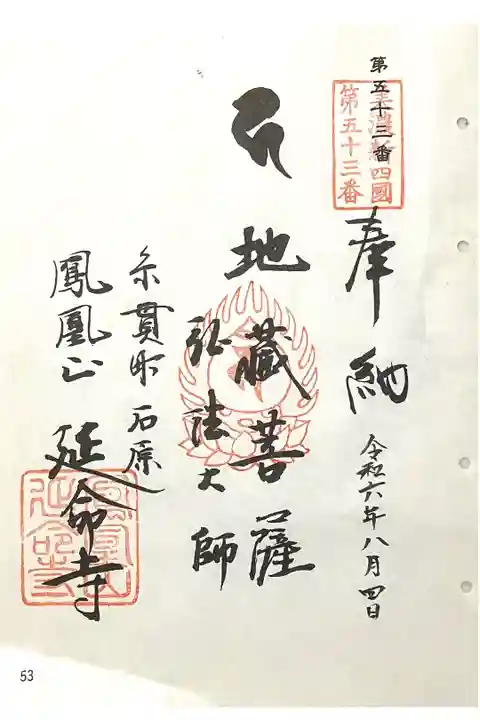 第五十三番
美濃新四國
第五十三番
奉納
令和六年八月四日
地藏菩薩
弘法大師
糸貫町石原
鳳凰山
延命寺
53